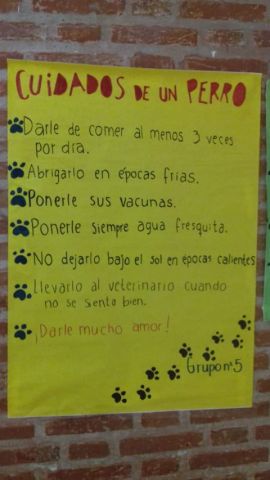 CUIDADOS DE UN PERRO
Darle de comer al menos 3 veces
por día.
Abrigarlo en épocas frias.
Ponerle sus vacunas.
Ponerle siempre agua fresquita.
No dejarlo bajo el sol en épocas calientes
Llevarlo al veterinario cuando
no se sienta bien.
¡Darle mucho amor!
Grupo n°5